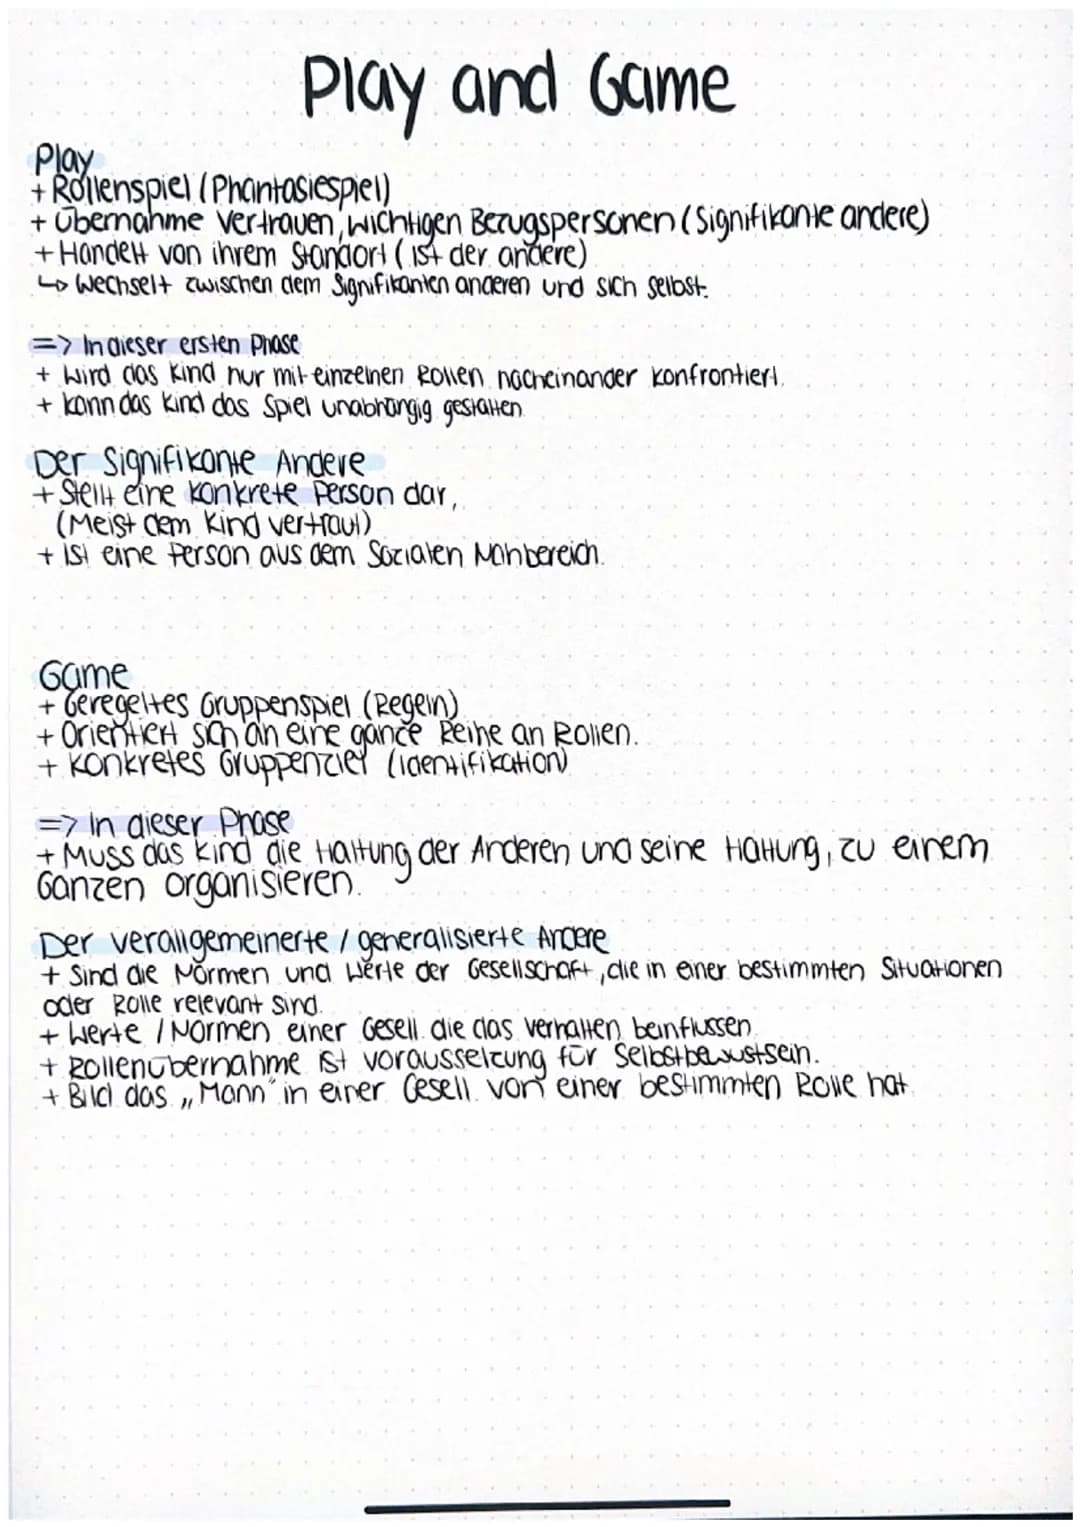 Play and Game
Play
+ Rollenspiel (Phantasiespiel)
+ Übernahme Vertrauen, wichtigen Bezugspersonen (Signifikante andere)
+ Handelt von ihrem Standort (ist der andere)
↳ Wechselt zwischen dem Signifikanten anderen und sich selbst.
=> In dieser ersten Phase
+ wird das Kind nur mit einzelnen Rollen nacheinander konfrontiert.
+ kann das Kind das Spiel unabhängig gestalten.
Der Signifikante Andere
+ Stellt eine konkrete Person dar,
(Meist dem Kind vertraut)
+ Ist eine Person aus dem Sozialen Nahbereich.
Game
+ Geregeltes Gruppenspiel (Regeln)
+ Orientiert sich an eine gance Reihe an Rollen.
+ Konkretes Gruppenziel (Identifikation)
=> In dieser Phase
+ Muss das Kind die Haltung der Anderen und seine Haltung, zu einem
Ganzen organisieren.
Der verallgemeinerte / generalisierte Andere
+ Sind die Normen und Werte der Gesellschaft, die in einer bestimmten Situationen
oder Rolle relevant sind.
+ Werte / Normen einer Gesell. die das Verhalten beinflussen.
+ Rollenübernahme ist voraussetzung für Selbstbewustsein.
+ Bild das „Mann" in einer Gesell. von einer bestimmten Rolle hat.